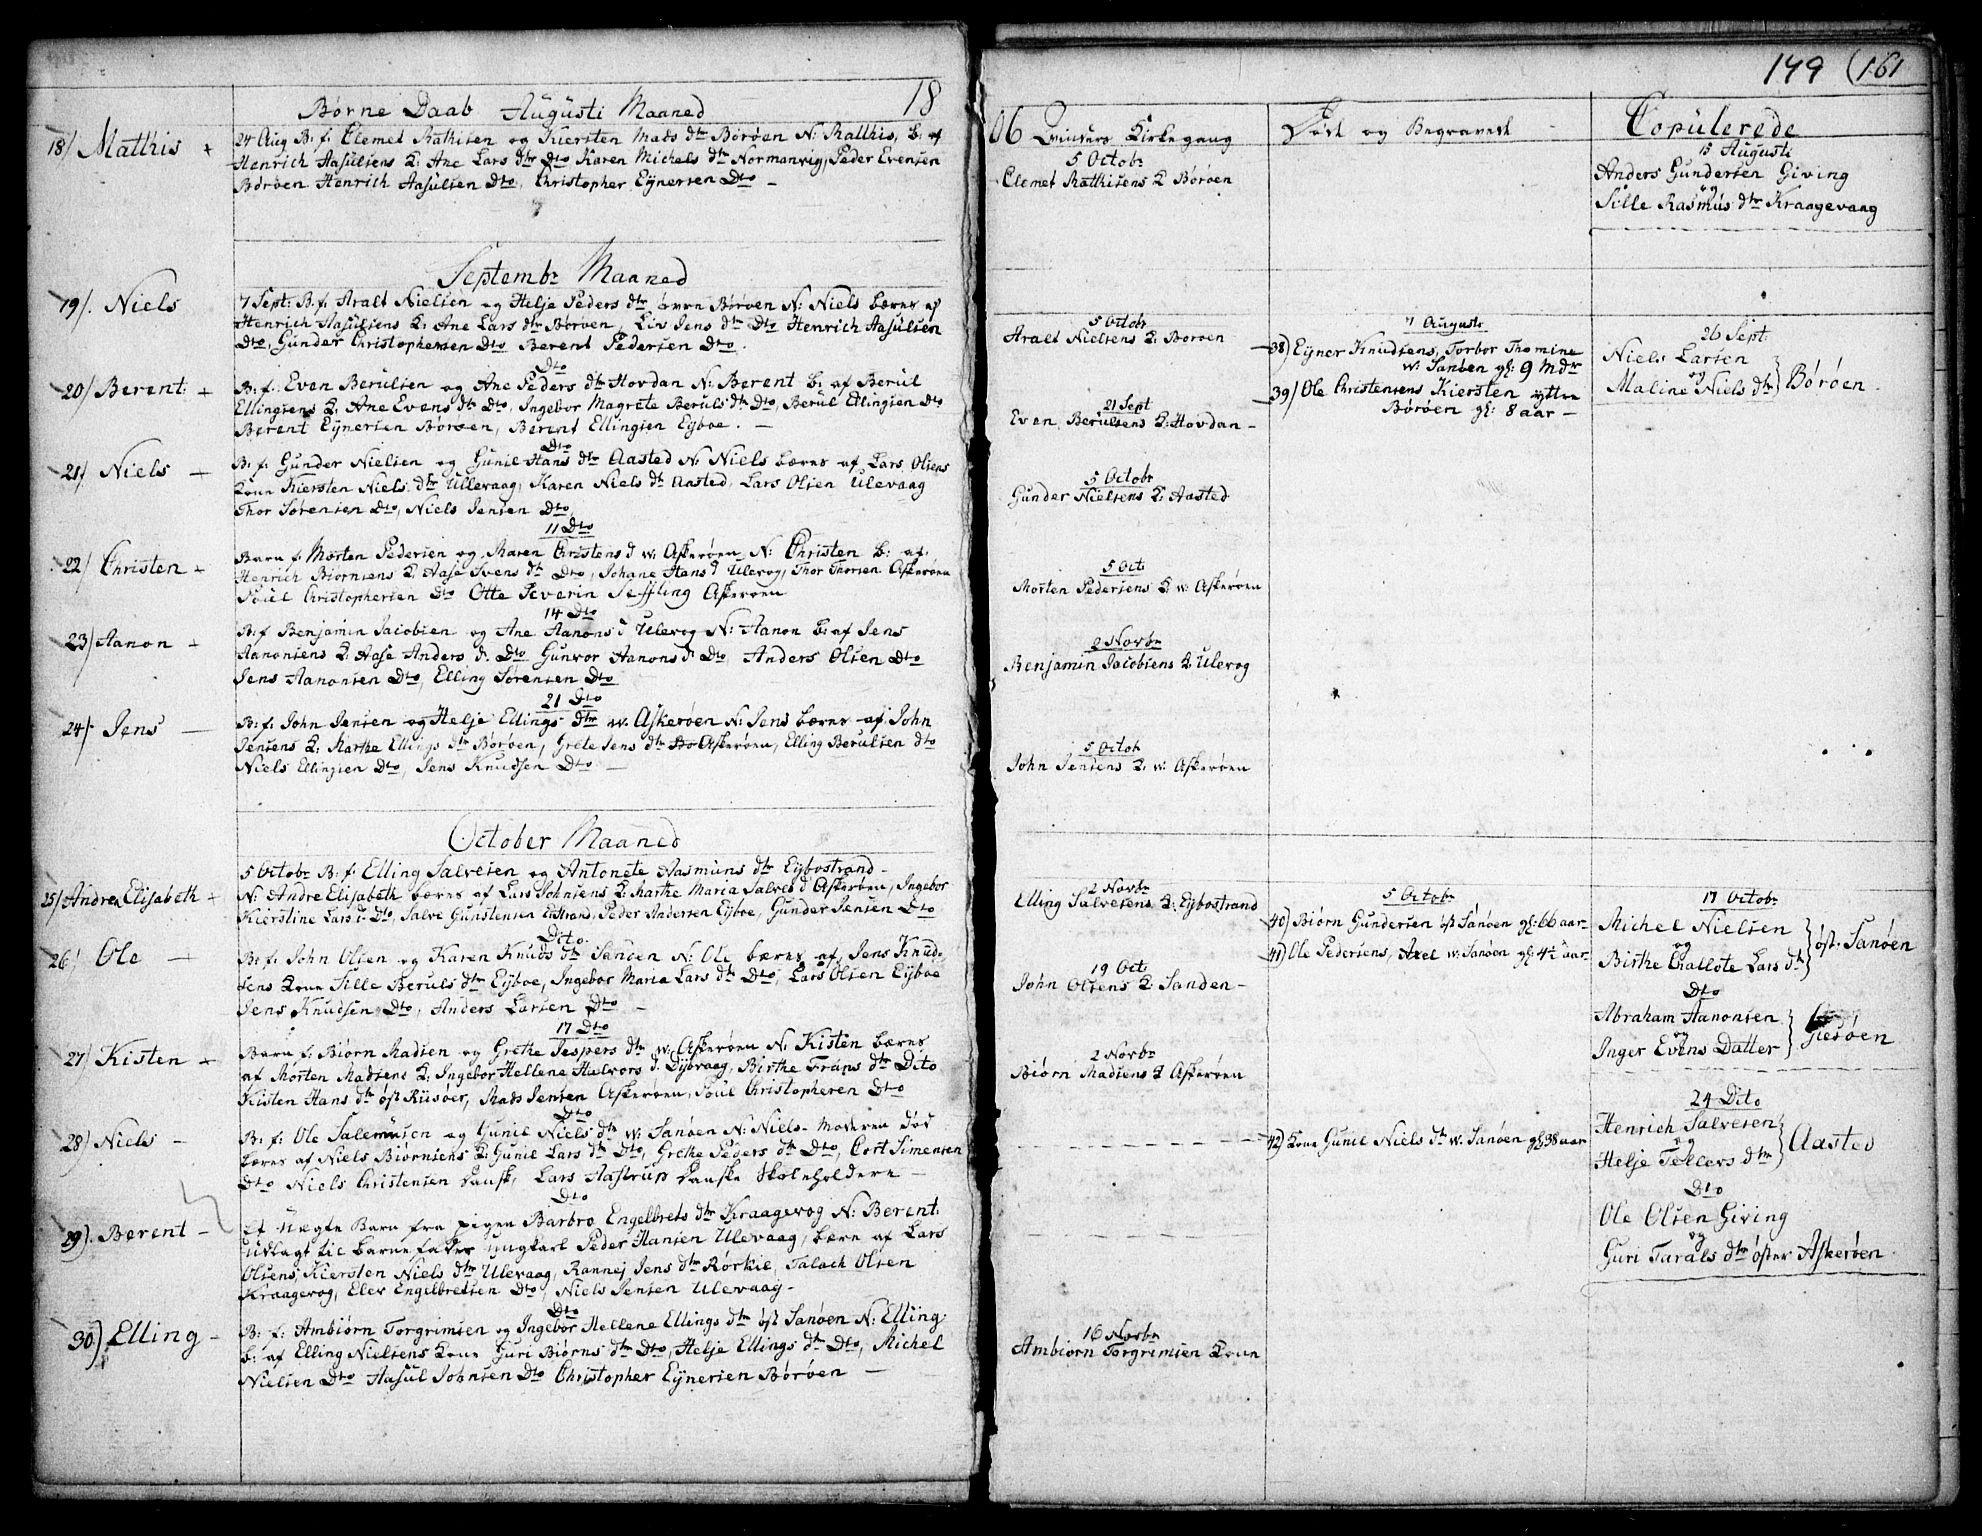 Børne Daab Augusti Maaned 18
18/ Mathis +
24 Aug B: f: Clemet Mathisen og Kiersten Mads dtr Børøen N: Matthis, b: af
Henrich Aasulsens K: Ane Lars dtr Dto Karen Michels dtr Normanvig, Peder Evensen
Børøen Henrich Aasulsen Dto, Christopher Eynersen Dto –
Septembr Maaned
19/. Niels
7 Sept: B: f: Aralt Nielsen og Helje Peders dtr Børøen N: Niels bæres af
Henrich Aasulsens K: Ane Lars dtr Børøen, Liv Jens dtr Dto Henrich Aasulsen
Dto, Gunder Christophersen Dto Berent Pedersen Dto.
Dto
20/ Berent: +
B: f: Even Berulsen og Ane Peders dtr Hovdan N: Berent b: af Berul
Ellingsens K: Ane Evens dtr Dto, Ingebor Magrete Beruls dtr Dto, Berul Ellingsen Dto
Berent Eynersen Børøen, Berent Ellingsen Eyboe. –
Dto
21/ Niels –
B: f: Gunder Nielsen og Gunil Hans dtr Aasted N: Niels bæres af Lars Olsens
Kone Kiersten Niels dtr Ullevaag, Karen Niels dtr Aasted, Lars Olsen Ulevaag
Thor Sørensen Dto, Niels Jensen Dto,
11 Dto
22/ Christen +
Barn f: Morten Pedersen og Maren Christens d w: Askerøen N: Christen b: af
Henrich Biørnsens K: Aase Svens dtr Dto, Johane Hans d Ulevog, Thor Thorsen Askerøen
Poul Christophersen Dto Otte Severin Seffling Askerøen
14 Dto
23/ Aanon +
B: f Benjamin Jacobsen og Ane Aanons d Ulevog N: Aanon b: af Jens
Aanonsens K: Aase Anders d: Dto Gunvor Aanons d Dto, Anders Olsen Dto
Jens Aanonsen Dto, Elling Sørensen Dto
21 Dto
24/. Jens –
B: f: John Jensen og Helje Ellings dtr w. Askerøen N: Jens bæres af John
Jensens K: Marthe Ellings dtr Børøen, Grete Jens dtr Askerøen, Elling Berulsen dto
Niels Ellingsen Dto, Jens Knudsen Dto –
October Maaned
25/ Andrea Elisabeth +
5 Octobr B: f: Elling Salvesen og Antonete Aasmuns dtr Eybostrand –
N: Andre Elisabeth bæres af Lars Johnsens K: Marthe Maria Salves d Askerøen, Ingebor
Kierstine Lars d: Dto, Salve Gunstensen Eistrand, Peder Andersen Eyboe, Gunder Jensen Dto
Dito
26/ Ole –
B: f: John Olsen og Karen Knuds dtr Sanden N: Ole bæres af Jens Knud-
sens Kone Sille Beruls dtr Eyboe, Ingebor Maria Lars dtr Dto, Lars Olsen Eyboe
Jens Knudsen Dto, Anders Larsen Dto –
17 Dto
27/ Kisten +
Barn f: Biørn Madsen og Grethe Jespers dtr w: Askerøen N: Kisten bæres
af Morten Madsens K: Ingebor Hellene Halvors d. Dybvaag, Birthe Frans dtr Dito
Kisten Hans dtr øst Riisøer, Mads Jensen Askerøen, Poul Christopheren Dto
Dto
28/ Niels –
B: f: Ole Salemusen og Gunil Niels dtr w: Sanøen N: Niels – Moderen død
bæres af Niels Biørnsens K: Gunil Lars dtr Dto, Grethe Peders dtr Dto, Cort Simensen
Dto Niels Christensen Danske, Lars Aastrup Danske Skoleholdere –
Dto
29). Berent –
Et uægte Barn fra pigen Barbro Engelbrets dtr Kraagevog N: Berent:
udlagt til barnefader ungkarl Peder Hansen Ulevaag, bæres af Lars
Olsens, Kiersten Niels dtr Ulevaag, Rannej Jens dtr Rørkil, Talach Olsen
Kraagevog, Elev Engelbretsen Dto, Niels Jensen Ulevaag –
Dto
30) Elling –
B: f: Ambiørn Torgrimsen og Ingebor Hellene Ellings dtr øst Sanøen N: Elling
b: af Elling Nielsens Kone Guri Biørns dtr Dto, Helje Ellings dtr Dto, Michel
Nielsen Dto Aasul Johnsen Dto Christopher Eynersen Børøen –
149 (161
06 Qvinders Kirkegang
5 Octobr
Clemet Matthisens K Børøen
5 Octobr
Aralt Nielsens K: Børøen
21 Sept
Even Berulsens K: Hovdan –
5 Octobr
Gunder Nielsens K: Aasted
5 Oct:
Morten Pedersens K w: Askerøen
2 Novbr
Benjamin Jacobsens K Ulevog
5 Octob
John Jensens K: w: Askerøen
2 Novbr
Elling Salvesens K: Eybostrand
19 Oct:
John Olsens K: Sanden –
2 Novbr
Biørn Madsens K Askerøen
16 Novbr
Ambiørn Torgrimsen Kone
Død og Begravede
7 Augusti
38) Eyner Knudsens, Torbor Thomine
w: Sanøen gl: 9 Mdr
39) Ole Christensens Kiersten yttre
Børøen gl: 8 aar –
5 Octobr
40) Biørn Gundersen øst Sanøen gl: 66 aar
41) Ole Pedersens, Axel w: Sanøen gl: 4½ aar
42) Kone Gunil Niels dtr w. Sanøen gl: 38 aar
Copulerede
15 Augusti
Anders Gundersen Giving
og
Sille Rasmus dtr Kraagevaag
26 Sept
Niels Larsen
og
Maline Niels dtr } Børøen.
17 Octobr
Michel Nielsen
og
Birthe Challote Lars dtr } øst. Sanøen
Dto
Abraham Aanonsen
og
Inger Evens Datter } Giesøen
24 Dito
Henrich Salvesen
og
Helje Tellers dtr } Aasted
Dto
Ole Olsen Giving
og
Guri Tarals dtr øster Askerøen